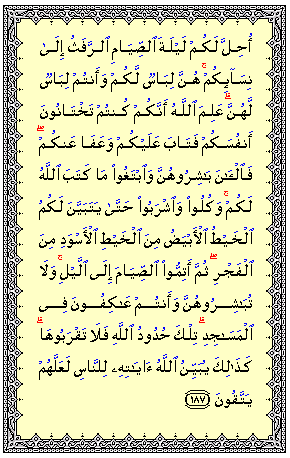 أُحِلَّ لَكُمْ لَيْلَةَ ٱلصِّيَامِ ٱلرَّفَثُ إِلَىٰ
نِسَآئِكُمْ ۚ هُنَّ لِبَاسٌ لَّكُمْ وَأَنتُمْ لِبَاسٌ
لَّهُنَّ ۗ عَلِمَ ٱللَّهُ أَنَّكُمْ كُنتُمْ تَخْتَانُونَ
أَنفُسَكُمْ فَتَابَ عَلَيْكُمْ وَعَفَا عَنكُمْ ۖ
فَٱلْـَٰٔنَ بَـٰشِرُوهُنَّ وَٱبْتَغُوا۟ مَا كَتَبَ ٱللَّهُ
لَكُمْ ۚ وَكُلُوا۟ وَٱشْرَبُوا۟ حَتَّىٰ يَتَبَيَّنَ لَكُمُ
ٱلْخَيْطُ ٱلْأَبْيَضُ مِنَ ٱلْخَيْطِ ٱلْأَسْوَدِ مِنَ
ٱلْفَجْرِ ۖ ثُمَّ أَتِمُّوا۟ ٱلصِّيَامَ إِلَى ٱلَّيْلِ ۚ وَلَا
تُبَـٰشِرُوهُنَّ وَأَنتُمْ عَـٰكِفُونَ فِى
ٱلْمَسَـٰجِدِ ۗ تِلْكَ حُدُودُ ٱللَّهِ فَلَا تَقْرَبُوهَا ۗ
كَذَٰلِكَ يُبَيِّنُ ٱللَّهُ ءَايَـٰتِهِۦ لِلنَّاسِ لَعَلَّهُمْ
يَتَّقُونَ ١٨٧